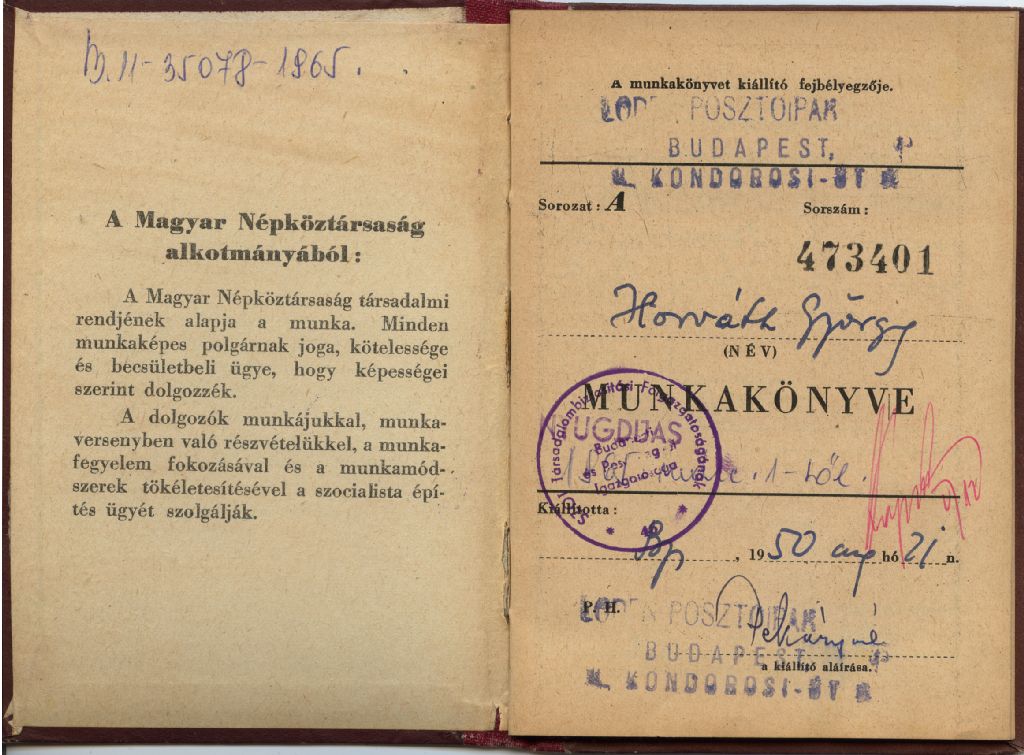 B. 11-35078-1965.
A Magyar Népköztársaság
alkotmányából:
A Magyar Népköztársaság társadalmi
rendjének alapja a munka. Minden
munkaképes polgárnak joga, kötelessége
és becsületbeli ügye, hogy képességei
szerint dolgozzék.
A dolgozók munkájukkal, munka-
versenyben való részvételükkel, a munka-
fegyelem fokozásával és a munkamód-
szerek tökéletesítésével a szocialista épí-
tés ügyét szolgálják.
A munkakönyvet kiállító fejbélyegzője.
POSZTÓIPAR
BUDAPEST,
KONDOROSI-ÚT
Sorozat: A Sorszám:
473401
Horváth György
(NÉV)
MUNKAKÖNYVE
NYUGDIJAS
1965 1-től.
SZOT Társadalombiztosítási Főigazgatóságának
Budapesti
és Pest
Igazgatósága
Kiállította:
Bp, 1950 aug hó 21 n.
P. H.
POSZTÓIPAR
BUDAPEST
a kiállító aláírása.
KONDOROSI-ÚT